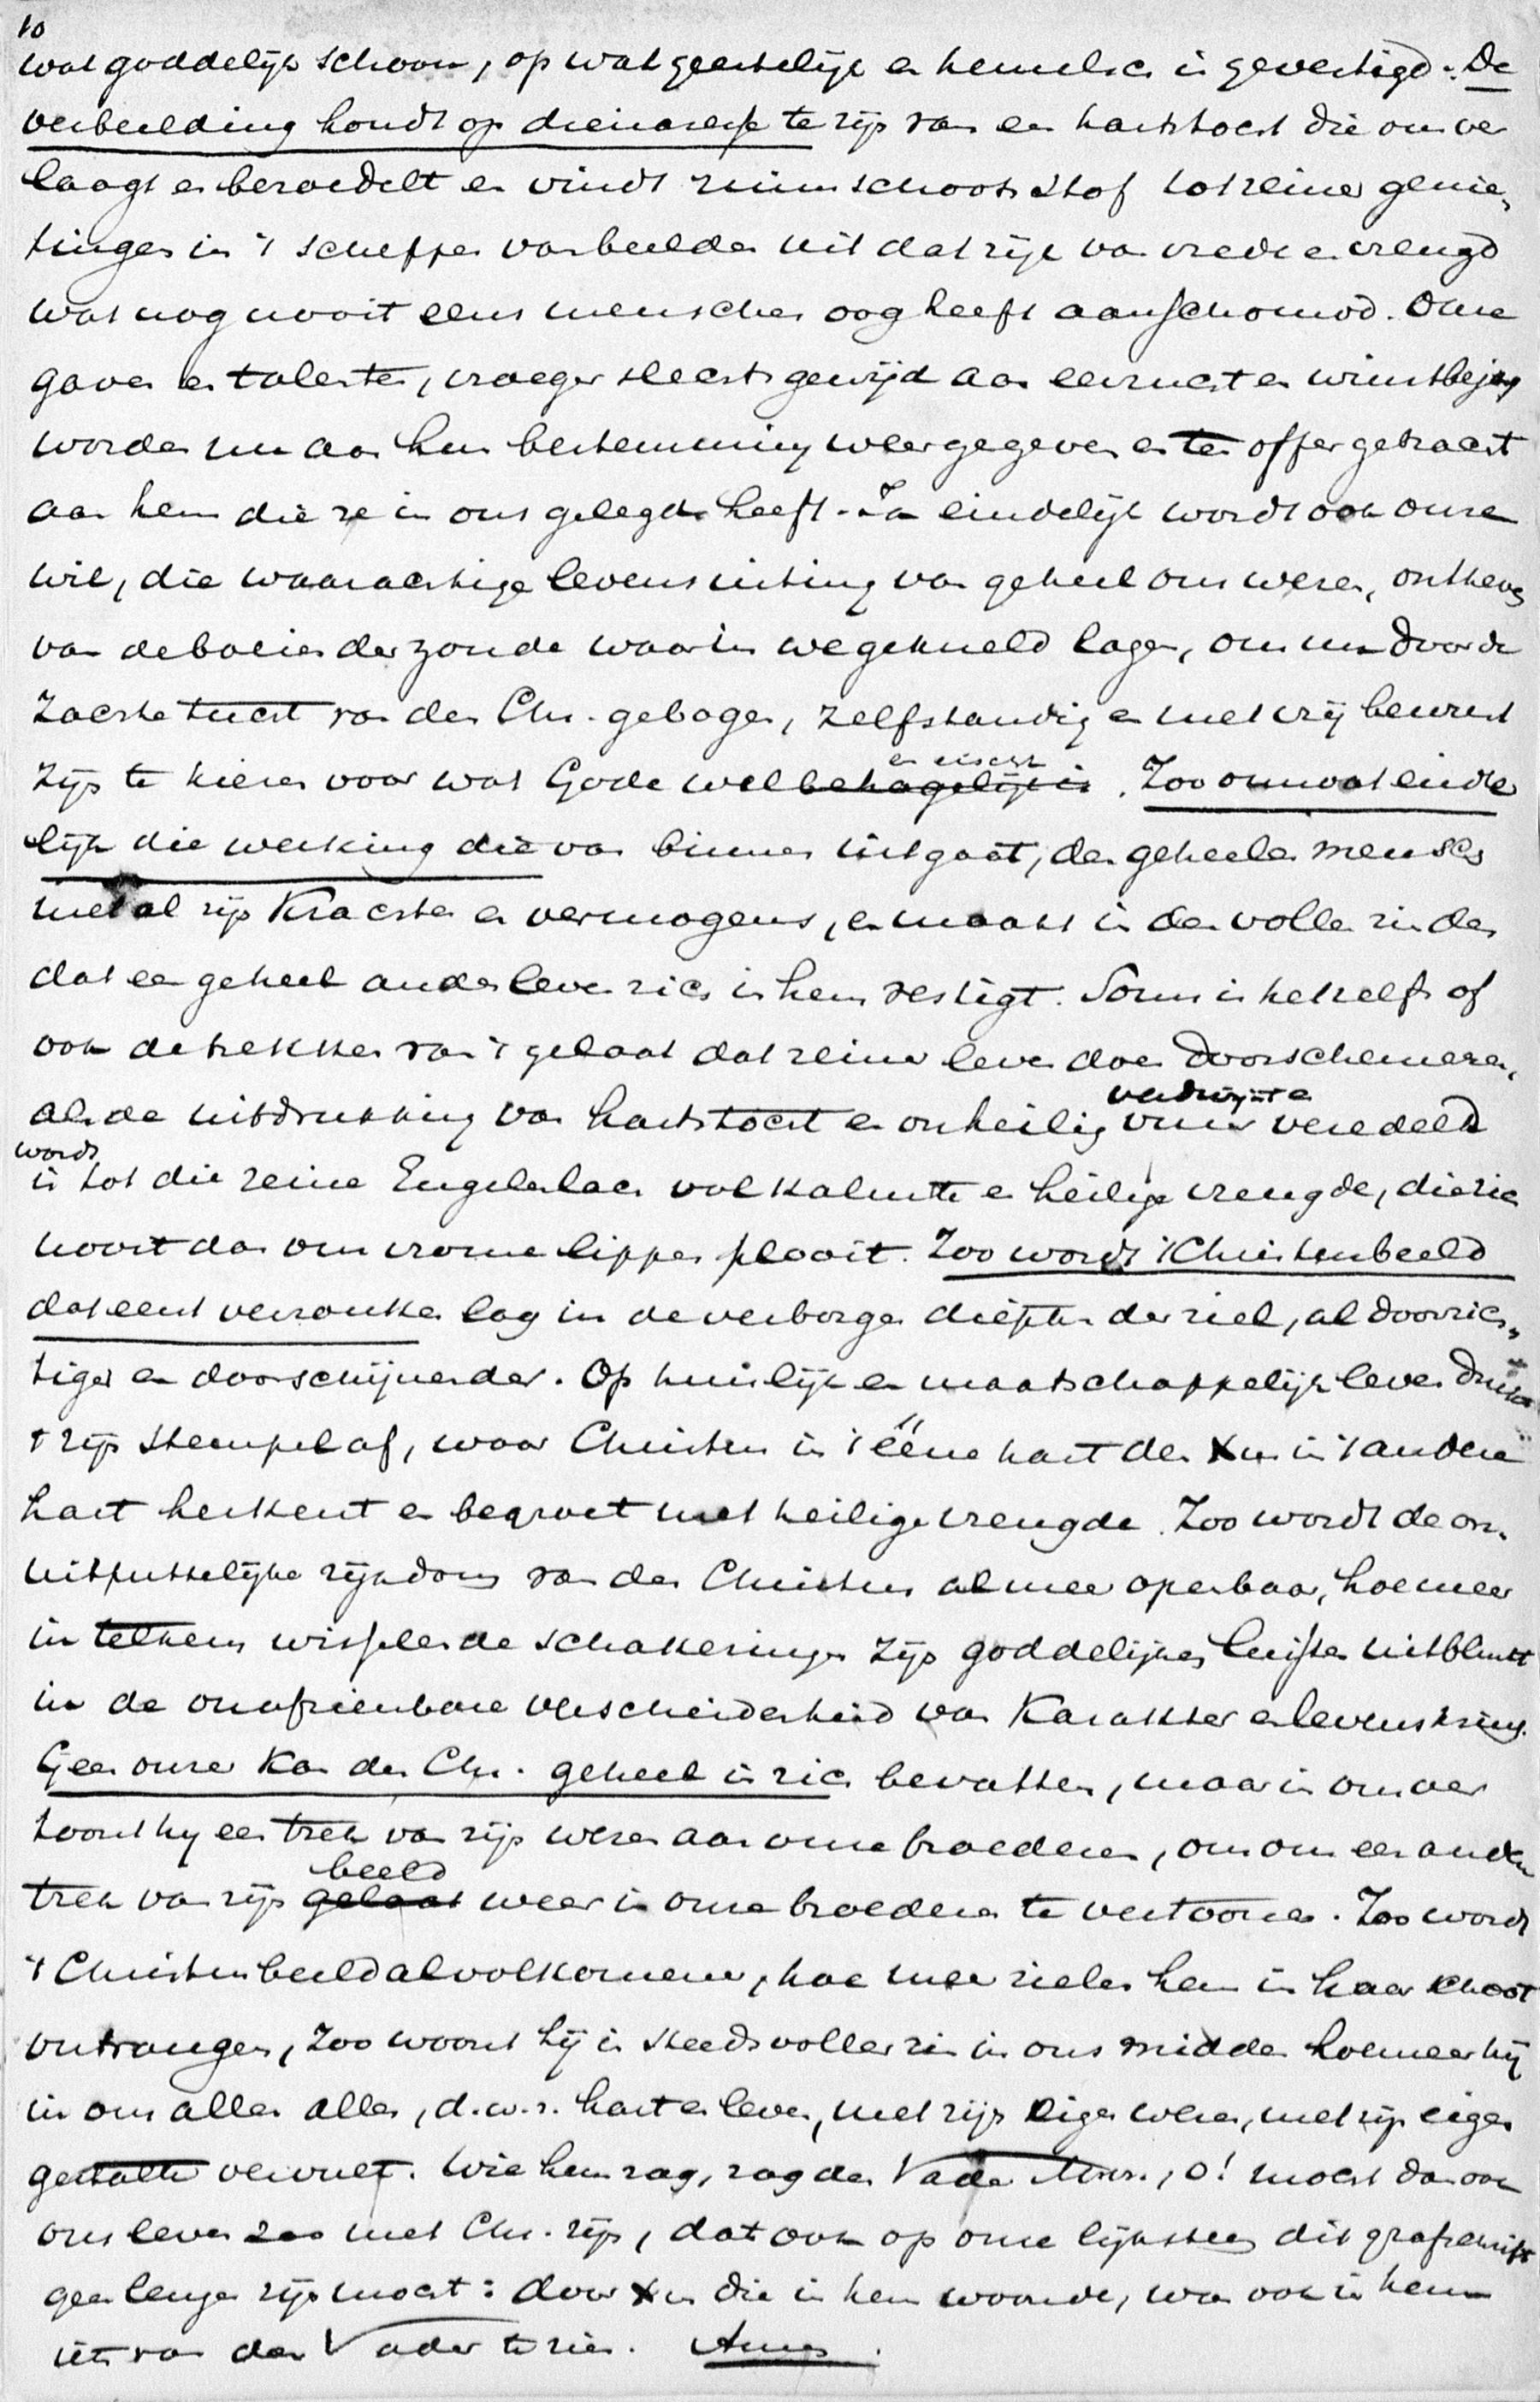 10
wat goddelijk schoon, op wat geestelijk en hemelsch is gevestigd. De
verbeelding houdt op dienaresse te zijn van een hartstocht die ons ver
laagt en bezoedelt en vindt ruimschoots stof tot reiner genie,
tingen in 't scheppen van beelden uit dat rijk van vrede en vreugd
wat nog nooit eens menschen oog heeft aanschouwd. Onze
gaven en talenten, vroeger slechts gewijd aan eerzucht en winstbejag
worden nu aan hun bestemming weergegeven en ten offer gebracht
aan hem die ze in ons gelegd heeft. Ja eindelijk wordt ook onze
wil, die waarachtige levensuiting van geheel ons wezen, ontheven
van de boeien der zonde waarin we gekneld lagen, om nu door de
zachte tucht van den Chr. gebogen, zelfstandig en met vrij bewust
zijn te kiezen voor wat Gode welbehagelijk is en eischt. Zoo omvat einde
lijk die werking die van binnen uitgaat, den geheelen mensch
met al zijn krachten en vermogens, en maakt in den vollen zin des
dat een geheel ander leven zich in hem vestigt. Soms is het zelfs of
ook de trekken van 't gelaat dat reiner leven doen doorschemeren,
als de uitdrukking van hartstocht en onheilig vuur verdwijnt en veredeld
wordt
is tot die reine Engelenlach vol kalmte en heilige vreugde, die zich
nooit dan om vrome lippen plooit. Zoo wordt 't Christusbeeld
dat eens verzonken lag in de verborgen diepten der ziel, al doorzich,,
tiger en doorschijnender. Op huislijk en maatschappelijk leven drukt
't zijn stempel af, waar Christus in 't ééne hart den Xus in 't andere
hart herkent en begroet met heilige vreugde. Zoo wordt de on,
uitputtelijke rijkdom van den Christus al meer openbaar, hoe meer
in telkens wisselende schakeringen zijn goddelijken luister uitblinkt
in de onafzienbare verscheidenheid van karakter en levenskring.
Geen onzer kan den Chr. geheel in zich bevatten, maar in ons oer
toont hij een trek van zijn wezen aan onze broederen, om ons een andren
beeld
trek van zijn gelaat weer in onze broederen te vertoonen. Zoo wordt
't Christusbeeld al volkomener, hoe meer zielen hem in haar schoot
ontvangen, zoo woont hij in steeds voller zin in ons midden hoe meer hij
in ons allen alles, d.w.z. hart en leven, met zijn eigen wezen, met zijn eigen
gestalte vervult. Wie hem zag, zag den Vader, o! mocht dan ook
ons leven zoo met Chr. zijn, dat ook op onze lijksteen dit grafschrift
geen leugen zijn mocht: door Xus die in hem woonde, was ook in hem
iets van den Vader te zien. Amen.